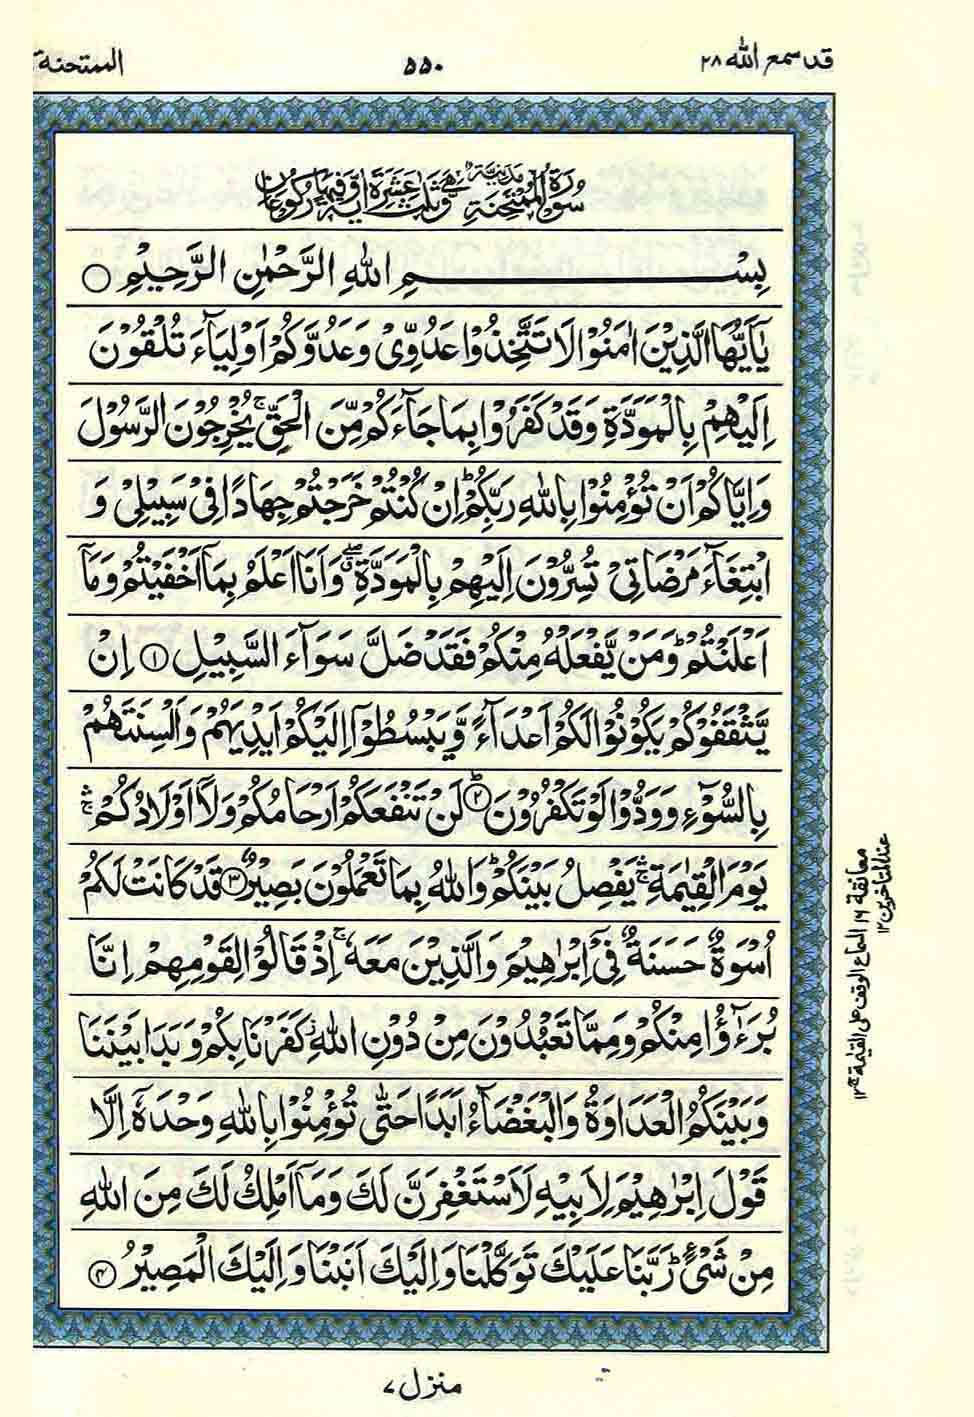 قد سمع الله ٢٨
٥٥٠
الممتحنة ٦٠
سُوْرَةُ الْمُمْتَحِنَةِ مَدَنِيَّةٌ وَّهِيَ ثَلٰثَ عَشْرَةَ اٰيَةً وَّفِيْهَا رُكُوْعَانِ
بِسْمِ اللهِ الرَّحْمٰنِ الرَّحِيْمِ ○
يٰٓاَيُّهَا الَّذِيْنَ اٰمَنُوْا لَا تَتَّخِذُوْا عَدُوِّىْ وَعَدُوَّكُمْ اَوْلِيَآءَ تُلْقُوْنَ
اِلَيْهِمْ بِالْمَوَدَّةِ وَقَدْ كَفَرُوْا بِمَا جَآءَكُمْ مِّنَ الْحَقِّ ۚ يُخْرِجُوْنَ الرَّسُوْلَ
وَاِيَّاكُمْ اَنْ تُؤْمِنُوْا بِاللهِ رَبِّكُمْ ؕ اِنْ كُنْتُمْ خَرَجْتُمْ جِهَادًا فِىْ سَبِيْلِىْ وَ
ابْتِغَآءَ مَرْضَاتِىْ تُسِرُّوْنَ اِلَيْهِمْ بِالْمَوَدَّةِ ۖ وَاَنَا اَعْلَمُ بِمَآ اَخْفَيْتُمْ وَمَآ
اَعْلَنْتُمْ ؕ وَمَنْ يَّفْعَلْهُ مِنْكُمْ فَقَدْ ضَلَّ سَوَآءَ السَّبِيْلِ ١ اِنْ
يَّثْقَفُوْكُمْ يَكُوْنُوْا لَكُمْ اَعْدَآءً وَّيَبْسُطُوْٓا اِلَيْكُمْ اَيْدِيَهُمْ وَاَلْسِنَتَهُمْ
بِالسُّوْٓءِ وَوَدُّوْا لَوْ تَكْفُرُوْنَ ؕ ٢ لَنْ تَنْفَعَكُمْ اَرْحَامُكُمْ وَلَآ اَوْلَادُكُمْ ۛۚ
يَوْمَ الْقِيٰمَةِ ۛۚ يَفْصِلُ بَيْنَكُمْ ؕ وَاللهُ بِمَا تَعْمَلُوْنَ بَصِيْرٌ ٣ قَدْ كَانَتْ لَكُمْ
اُسْوَةٌ حَسَنَةٌ فِىْٓ اِبْرٰهِيْمَ وَالَّذِيْنَ مَعَهٗ ۚ اِذْ قَالُوْا لِقَوْمِهِمْ اِنَّا
بُرَءٰٓؤُا مِنْكُمْ وَمِمَّا تَعْبُدُوْنَ مِنْ دُوْنِ اللهِ كَفَرْنَا بِكُمْ وَبَدَا بَيْنَنَا
وَبَيْنَكُمُ الْعَدَاوَةُ وَالْبَغْضَآءُ اَبَدًا حَتّٰى تُؤْمِنُوْا بِاللهِ وَحْدَهٗٓ اِلَّا
قَوْلَ اِبْرٰهِيْمَ لِاَبِيْهِ لَاَسْتَغْفِرَنَّ لَكَ وَمَآ اَمْلِكُ لَكَ مِنَ اللهِ
مِنْ شَىْءٍ ؕ رَبَّنَا عَلَيْكَ تَوَكَّلْنَا وَاِلَيْكَ اَنَبْنَا وَاِلَيْكَ الْمَصِيْرُ ٤
معانقة ١٦
عند المتاخرين ١٢
منزل ٧